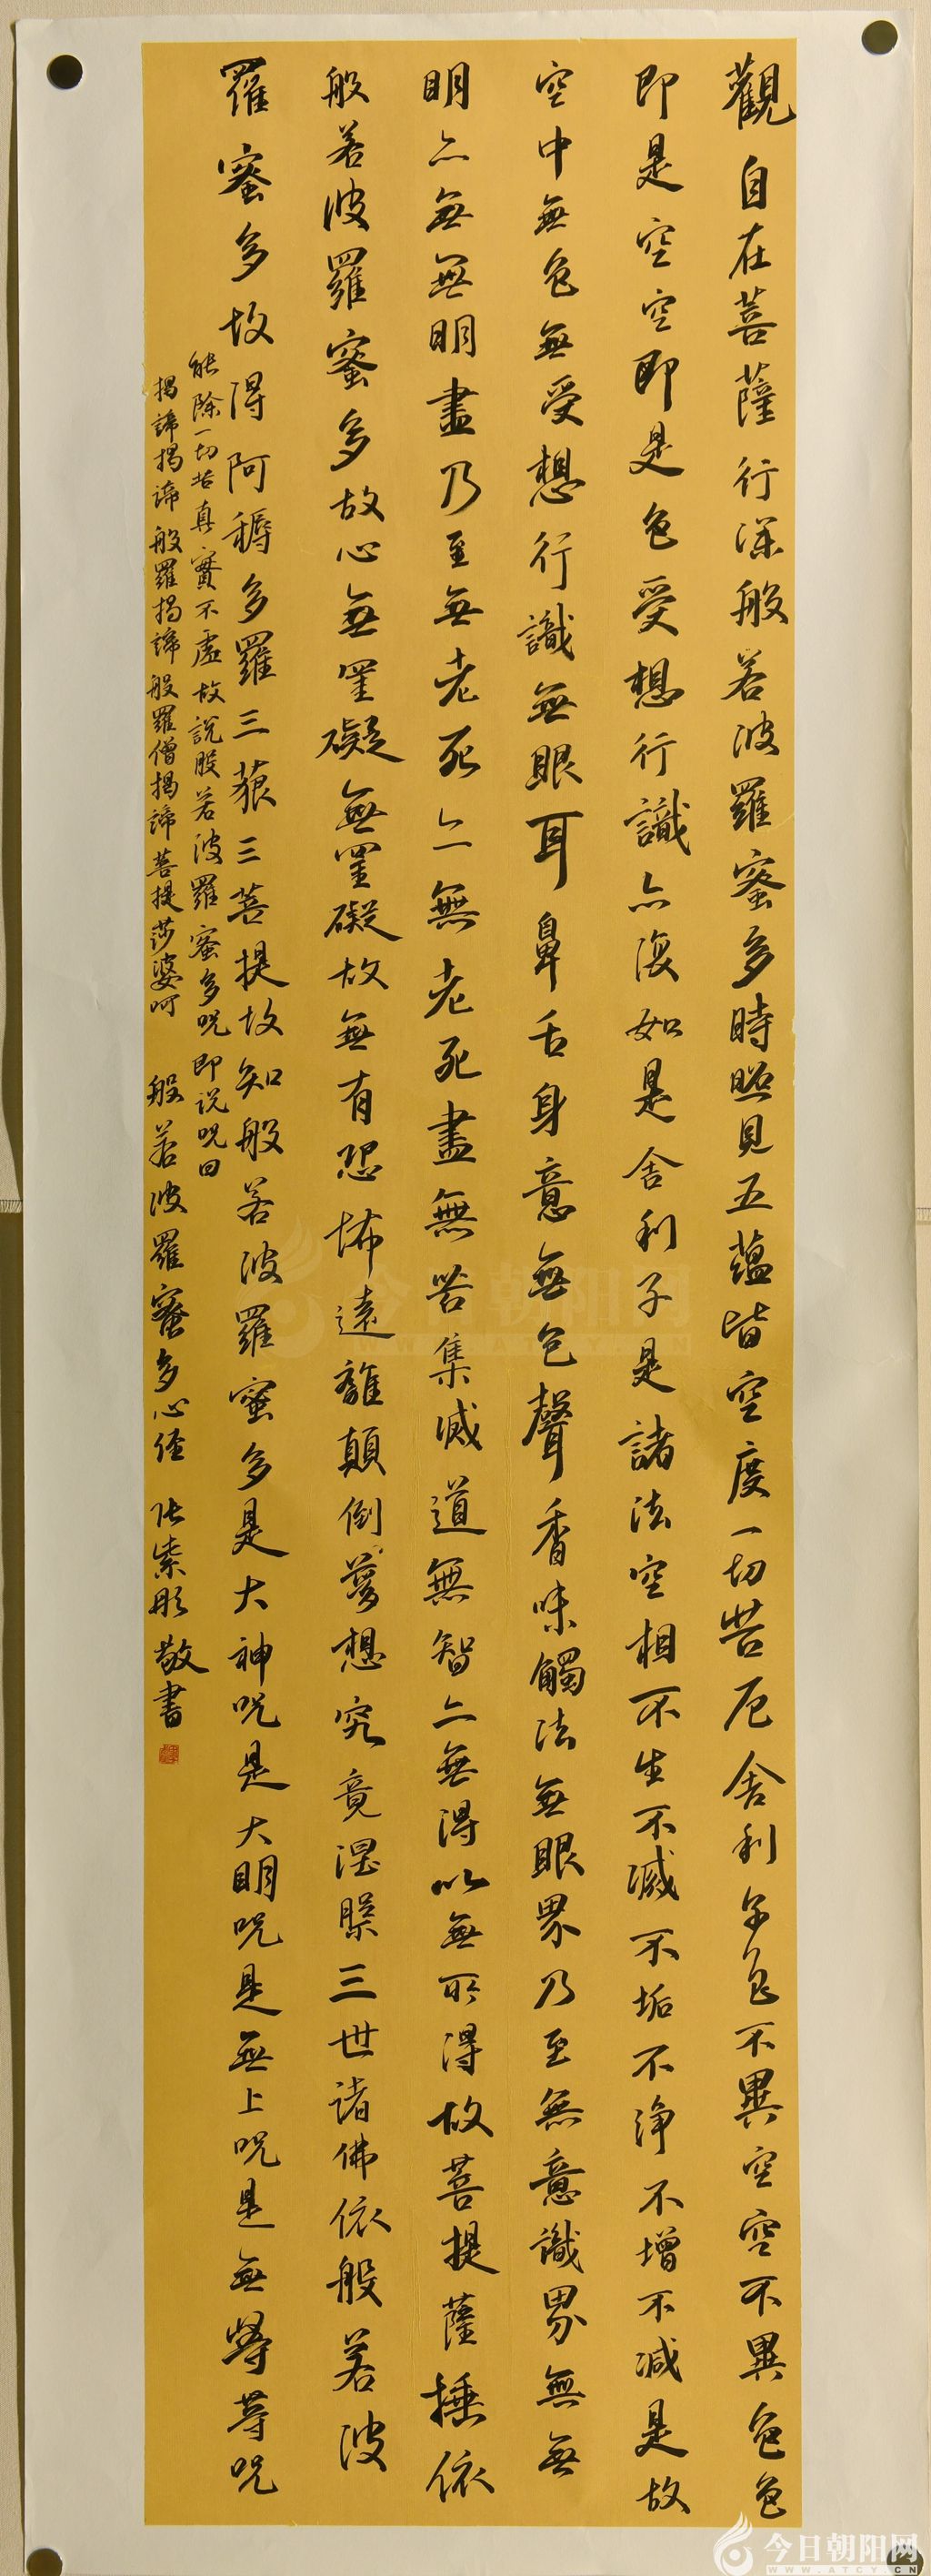 觀自在菩薩行深般若波羅蜜多時照見五蘊皆空度一切苦厄舍利子色不異空空不異色色
即是空空即是色受想行識亦復如是舍利子是諸法空相不生不滅不垢不淨不增不減是故
空中無色無受想行識無眼耳鼻舌身意無色聲香味觸法無眼界乃至無意識界無無
明亦無無明盡乃至無老死亦無老死盡無苦集滅道無智亦無得以無所得故菩提薩埵依
般若波羅蜜多故心無罣礙無罣礙故無有恐怖遠離顛倒夢想究竟涅槃三世諸佛依般若波
羅蜜多故得阿耨多羅三藐三菩提故知般若波羅蜜多是大神咒是大明咒是無上咒是無等等咒
能除一切苦真實不虛故說般若波羅蜜多咒即说咒曰
揭諦揭諦般羅揭諦般羅僧揭諦菩提莎婆呵 般若波羅蜜多心経 張紫彤敬書
今日朝阳网
WWW.ATCY.CN
今日朝阳网
WWW.ATCY.CN